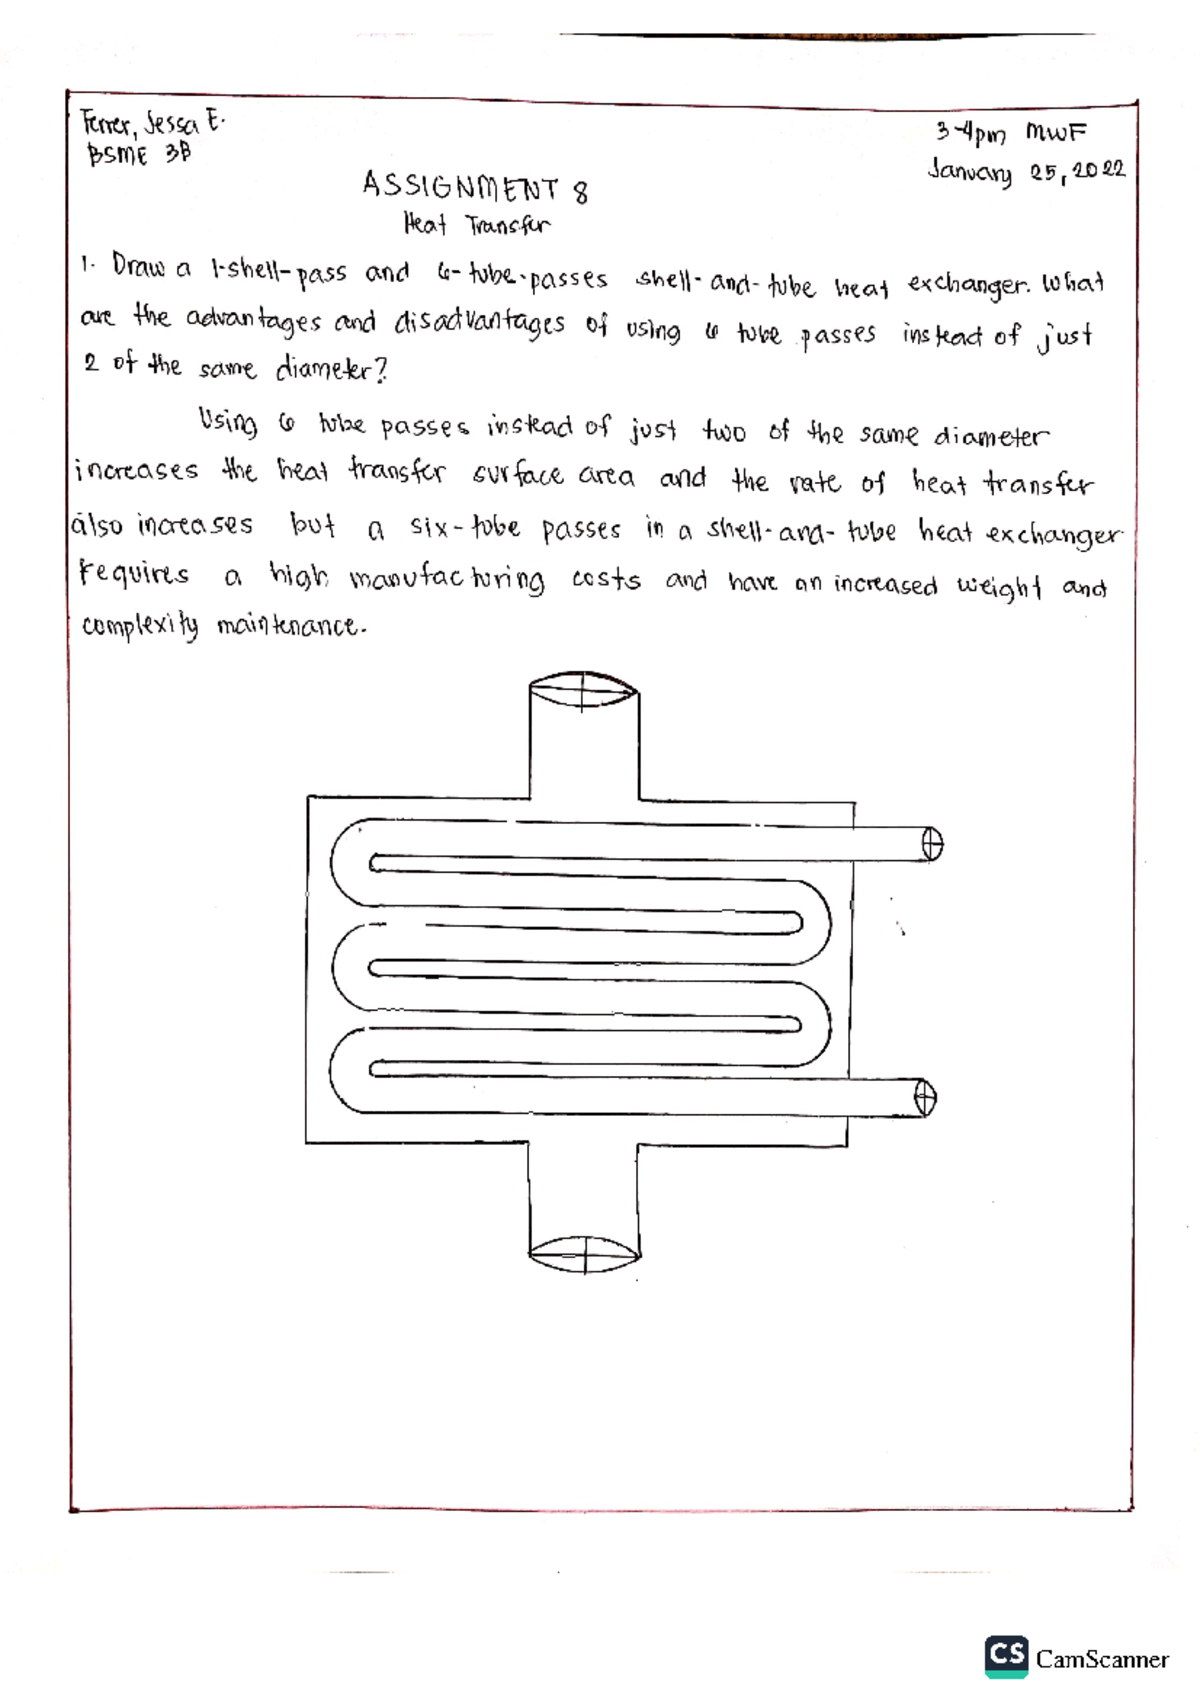 Ferrer, Jessa E.
3-4pm MWF
BSME 3B
January 25, 2022
ASSIGNMENT 8
Heat Transfer
1. Draw a 1-shell-pass and 6-tube-passes shell-and-tube heat exchanger. What
are the advantages and disadvantages of using 6 tube passes instead of just
2 of the same diameter?
Using 6 tube passes instead of just two of the same diameter
increases the heat transfer surface area and the rate of heat transfer
also increases but a six-tube passes in a shell-and-tube heat exchanger
requires a high manufacturing costs and have an increased weight and
complexity maintenance.
CS CamScanner